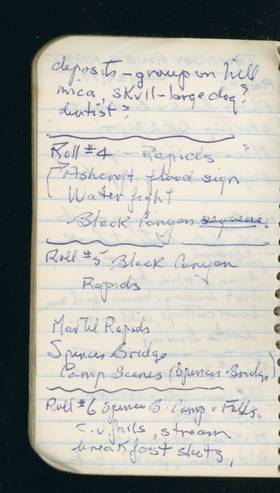 deposits - group on hill
mica. skull - large dog?
dentist?
Roll #4 - Rapids
Ashcroft flood sign
Water fight
Black Canyon
Roll #5 Black Canyon
Rapids
Martel Rapids
Spences Bridge
Camp Scenes (Spences Bridge)
Roll #6 Spences B. Camp + Falls,
c.u. falls, stream
breakfast shots,